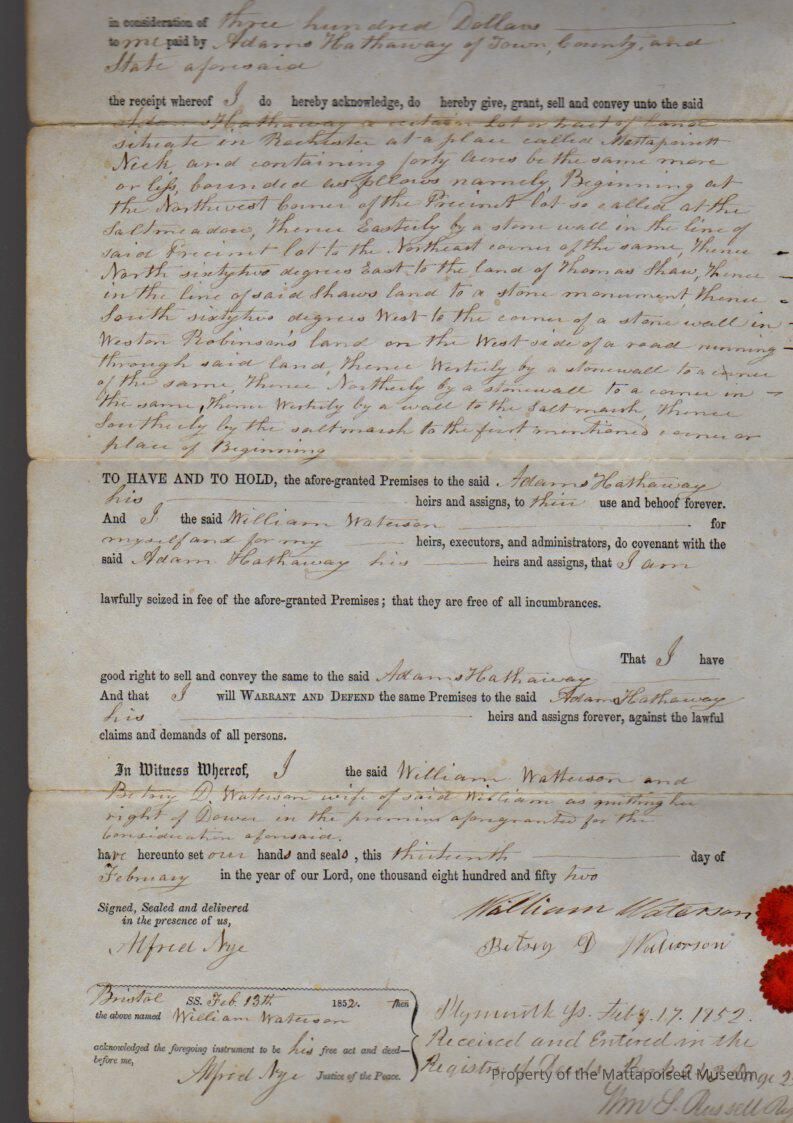 in consideration of three hundred Dollars
to me paid by Adams Hathaway of Town, County, and
State aforesaid
the receipt whereof I do hereby acknowledge, do hereby give, grant, sell and convey unto the said
Hathaway a certain Lot or tract of Land
situate in Rochester at a place called Mattapoisett
Neck and containing forty acres be the same more
or less, bounded as follows namely, Beginning at
the Northwest Corner of the Precinct lot so called at the
Saltmeadow, thence Easterly by a stone wall in the line of
said Precinct lot to the Northeast corner of the same, thence
North sixtytwo degrees East to the land of Thomas Shaw, thence
in the line of said Shaws land to a stone monument, thence
South sixtytwo degrees West to the corner of a stone wall in
Weston Robinson's land on the West side of a road running
through said land, thence Westerly by a stonewall to a corner
of the same, thence Northerly by a stonewall to a corner in
the same, thence Westerly by a wall to the Salt marsh, thence
Southerly by the saltmarsh to the first mentioned corner or
place of Beginning
TO HAVE AND TO HOLD, the afore-granted Premises to the said Adams Hathaway
his heirs and assigns, to their use and behoof forever.
And I the said William Waterson for
myself and for my heirs, executors, and administrators, do covenant with the
said Adam Hathaway his heirs and assigns, that I am
lawfully seized in fee of the afore-granted Premises; that they are free of all incumbrances.
That I have
good right to sell and convey the same to the said Adams Hathaway
And that I will WARRANT AND DEFEND the same Premises to the said Adams Hathaway
his heirs and assigns forever, against the lawful
claims and demands of all persons.
In Witness Whereof, I the said William Watterson and
Betsey D. Waterson wife of said William as quitting her
right of Dower in the premises aforegranted for the
Consideration aforesaid.
have hereunto set our hands and seals, this thirteenth day of
February in the year of our Lord, one thousand eight hundred and fifty two
Signed, Sealed and delivered
in the presence of us,
Alfred Nye
William Waterson
Betsey D Waterson
Bristol SS. Feb. 13th 1852. Then
the above named William Waterson
acknowledged the foregoing instrument to be his free act and deed—
before me,
Alfred Nye Justice of the Peace.
Plymouth Ss. Feby. 17. 1852.
Received and Entered in the
Registry of Deeds
Wm S. Russell
Property of the Mattapoisett Museum